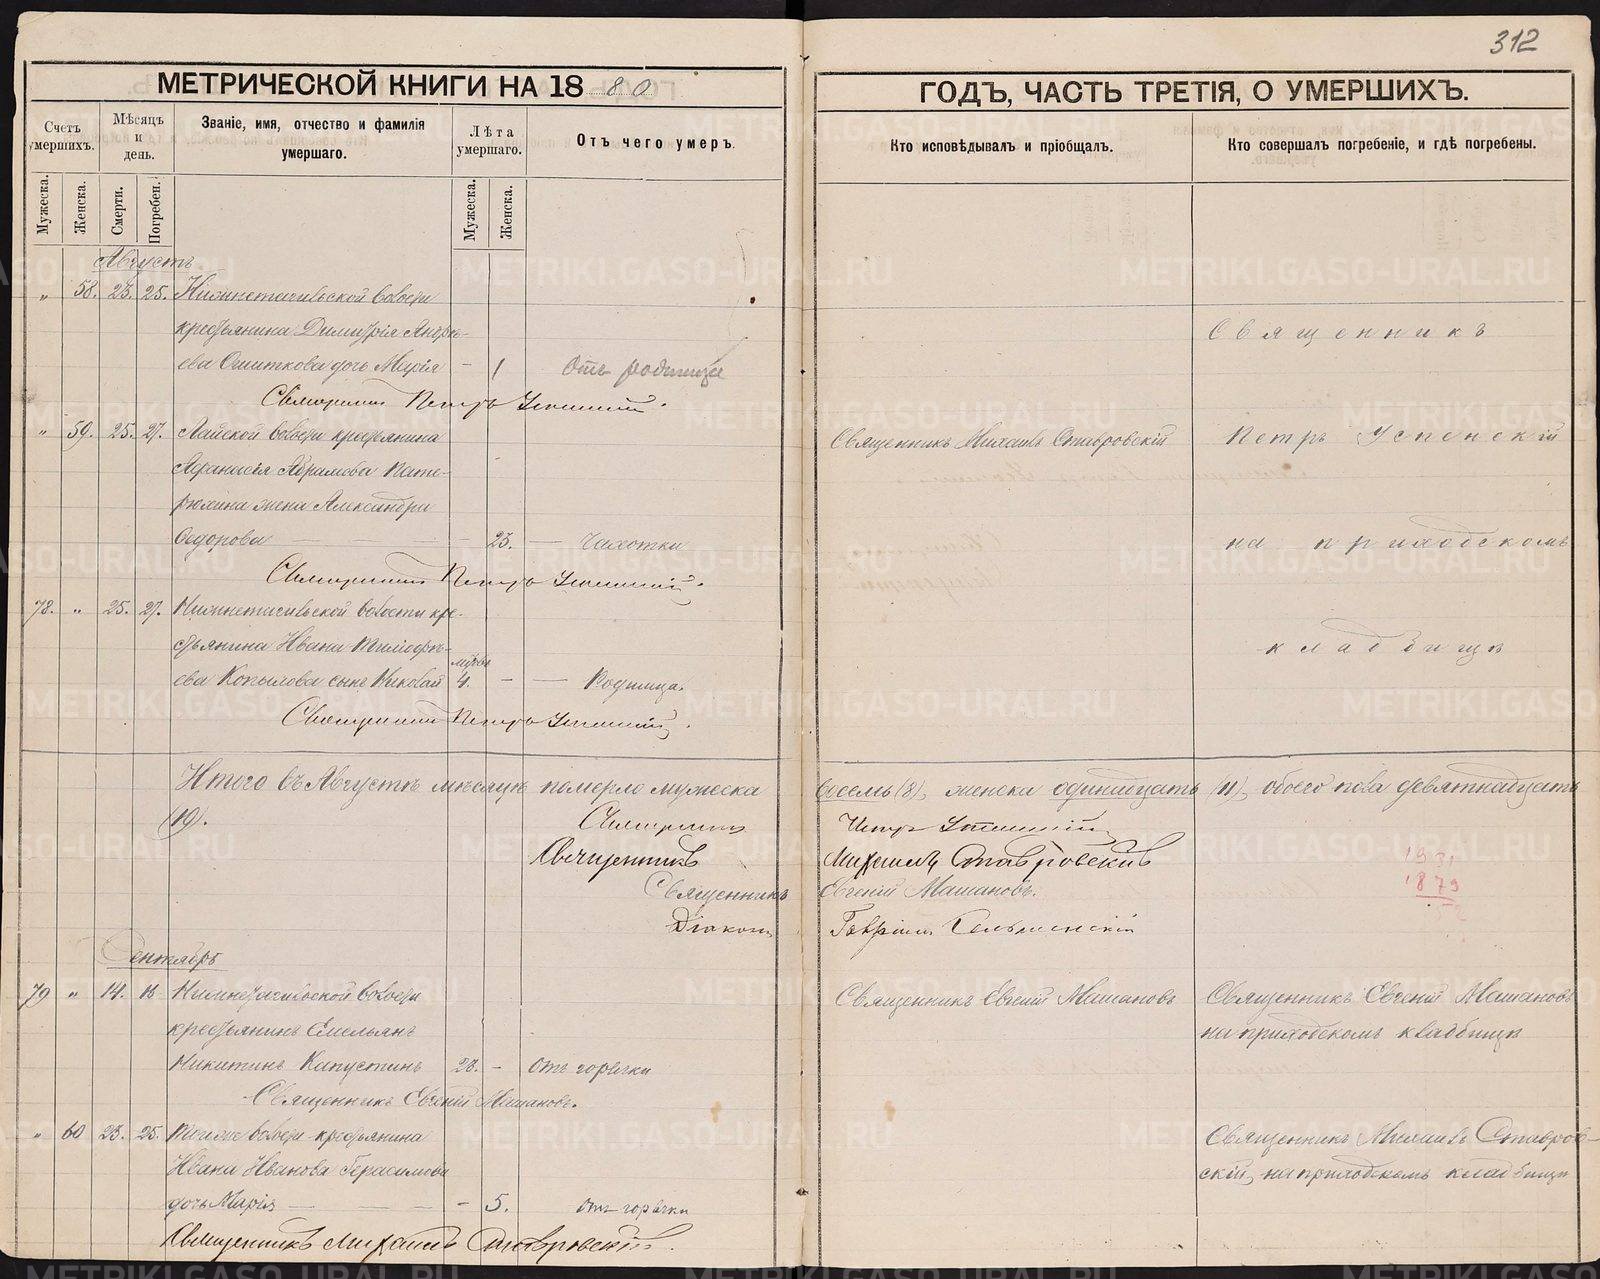 312
МЕТРИЧЕСКОЙ КНИГИ НА 1880
ГОДЪ, ЧАСТЬ ТРЕТІЯ, О УМЕРШИХЪ.
Счетъ умершихъ.
Мѣсяцъ и день.
Званіе, имя, отчество и фамилія умершаго.
Лѣта умершаго.
Отъ чего умеръ.
Кто исповѣдывалъ и пріобщалъ.
Кто совершалъ погребеніе, и гдѣ погребены.
Мужеска.
Женска.
Смерти.
Погребен.
Мужеска.
Женска.
Августъ
„ 58. 23. 25. Нижнетагильской волости
крестьянина Димитрія Андре-
ева дочь Марія – 1 Отъ родимца
Священникъ
Священникъ Петръ Успенскій.
„ 59. 25. 27. Лайской волости крестьянина
Аѳанасія Абрамова Пате-
рюхина жена Александра
Ѳедорова 23. Чахотки
Священникъ Михаилъ Ставровскій
Петръ Успенскій
на приходскомъ
Священникъ Петръ Успенскій.
78. „ 25. 27. Нижнетагильской волости кре-
стьянина Ивана Тимоѳѣ-
ева Копылова сынъ Николай 4. – Родимца.
кладбищѣ
Священникъ Петръ Успенскій.
Итого въ Августѣ мѣсяцѣ померло мужеска восемь (8), женска одинадцать (11), обоего пола девятнадцать
(19).
Священникъ Петръ Успенскій
Священникъ Михаилъ Ставровскій
Священникъ Евгеній Машановъ.
Діаконъ Гавріилъ
1879
Сентябрь
79 „ 14. 16 Нижнетагильской волости
крестьянинъ Емельянъ
Никитинъ Капустинъ 28. – Отъ горячки
Священникъ Евгеній Машановъ
Священникъ Евгеній Машановъ
на приходскомъ кладбищѣ
Священникъ Евгеній Машановъ.
„ 60 23. 25. Тоиже волости крестьянина
Ивана Иванова Герасимова
дочь Марія – 5. отъ горячки
Священникъ Михаилъ Ставров-
скій, на приходскомъ кладбищѣ
Священникъ Михаилъ Ставровскій.
METRIKI.GASO-URAL.RU